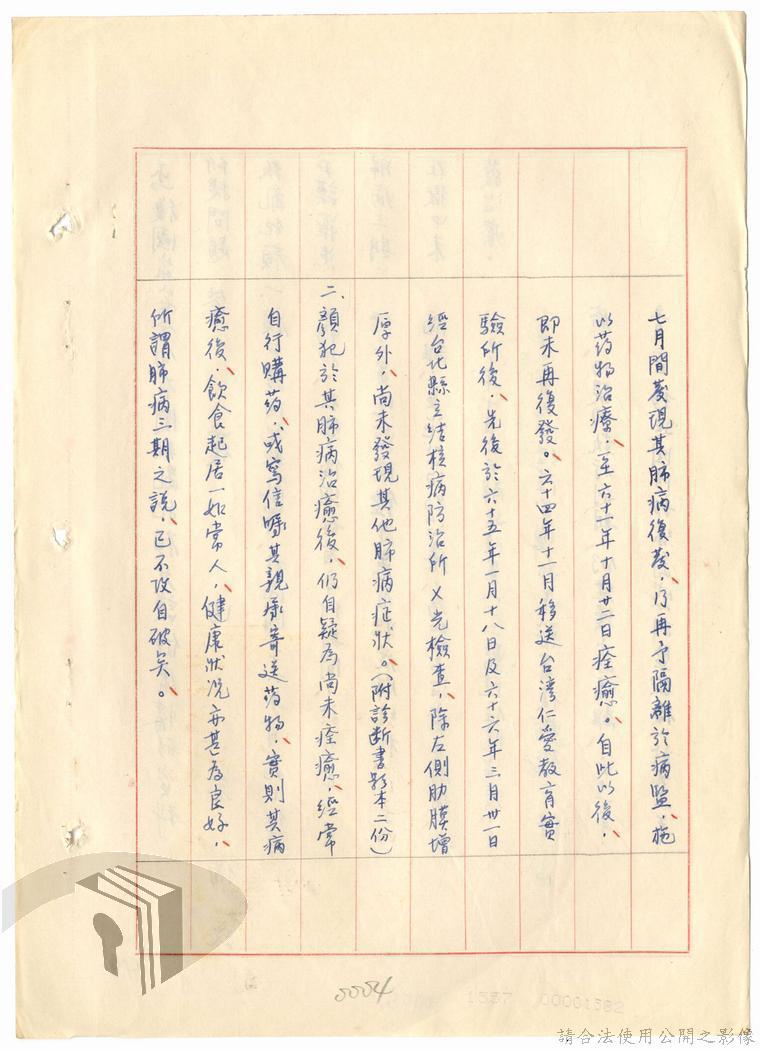 七月間發現其肺病復發，乃再予隔離於病監，施
以药物治療，至六十一年十月廿二日痊癒。自此以後，
即未再復發。六十四年十一月移送台湾仁愛教育實
驗所後，先後於六十五年一月十八日及六十六年三月卅一日
經台北縣立结核病防治所X光檢查，除左側肋膜增
厚外，尚未發現其他肺病症状。（附診断書影本二份）
二、顏犯於其肺病治癒後，仍自疑為尚未痊癒，經常
自行購药，或寫信囑其親屬寄送药物，實則其病
癒後，飲食起居一如常人，健康狀況亦甚為良好，
所謂肺病三期之說，已不攻自破矣。
0004
1557 00001582
請合法使用公開之影像